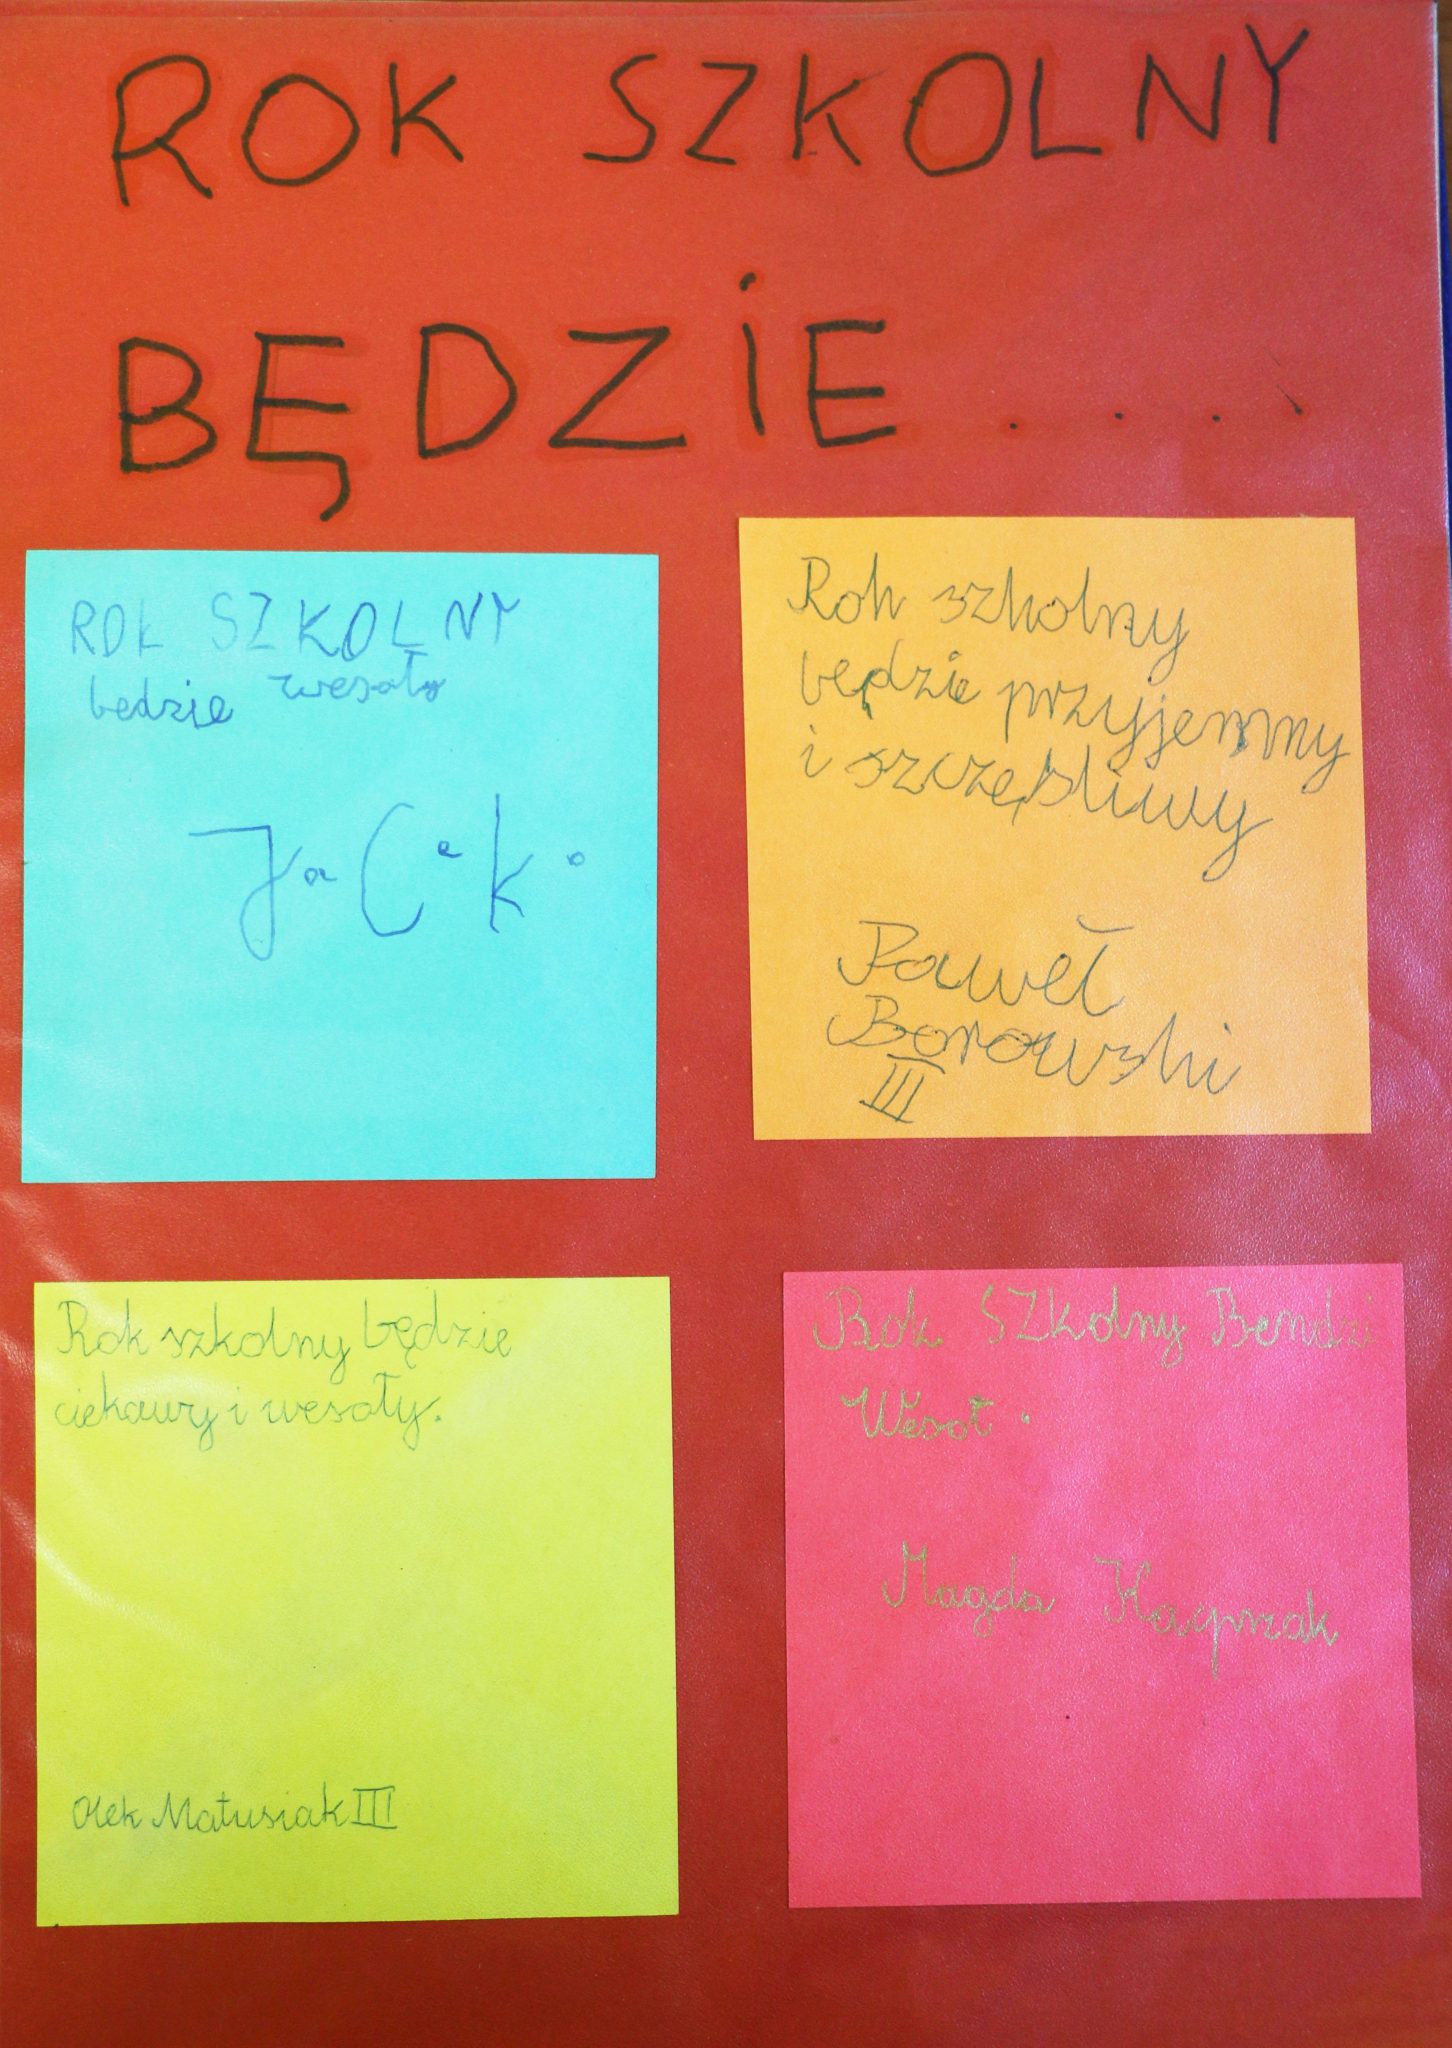 ROK SZKOLNY
BĘDZiE....
ROK SZKOLNY
będzie wesoły
JaCek
Rok szkolny
będzie przyjemny
i szczęśliwy
Paweł
Borowski
III
Rok szkolny będzie
ciekawy i wesoły.
Olek Matusiak III
Rok SZkolny Bendzi
Wesoł.
Magda Kacprzak